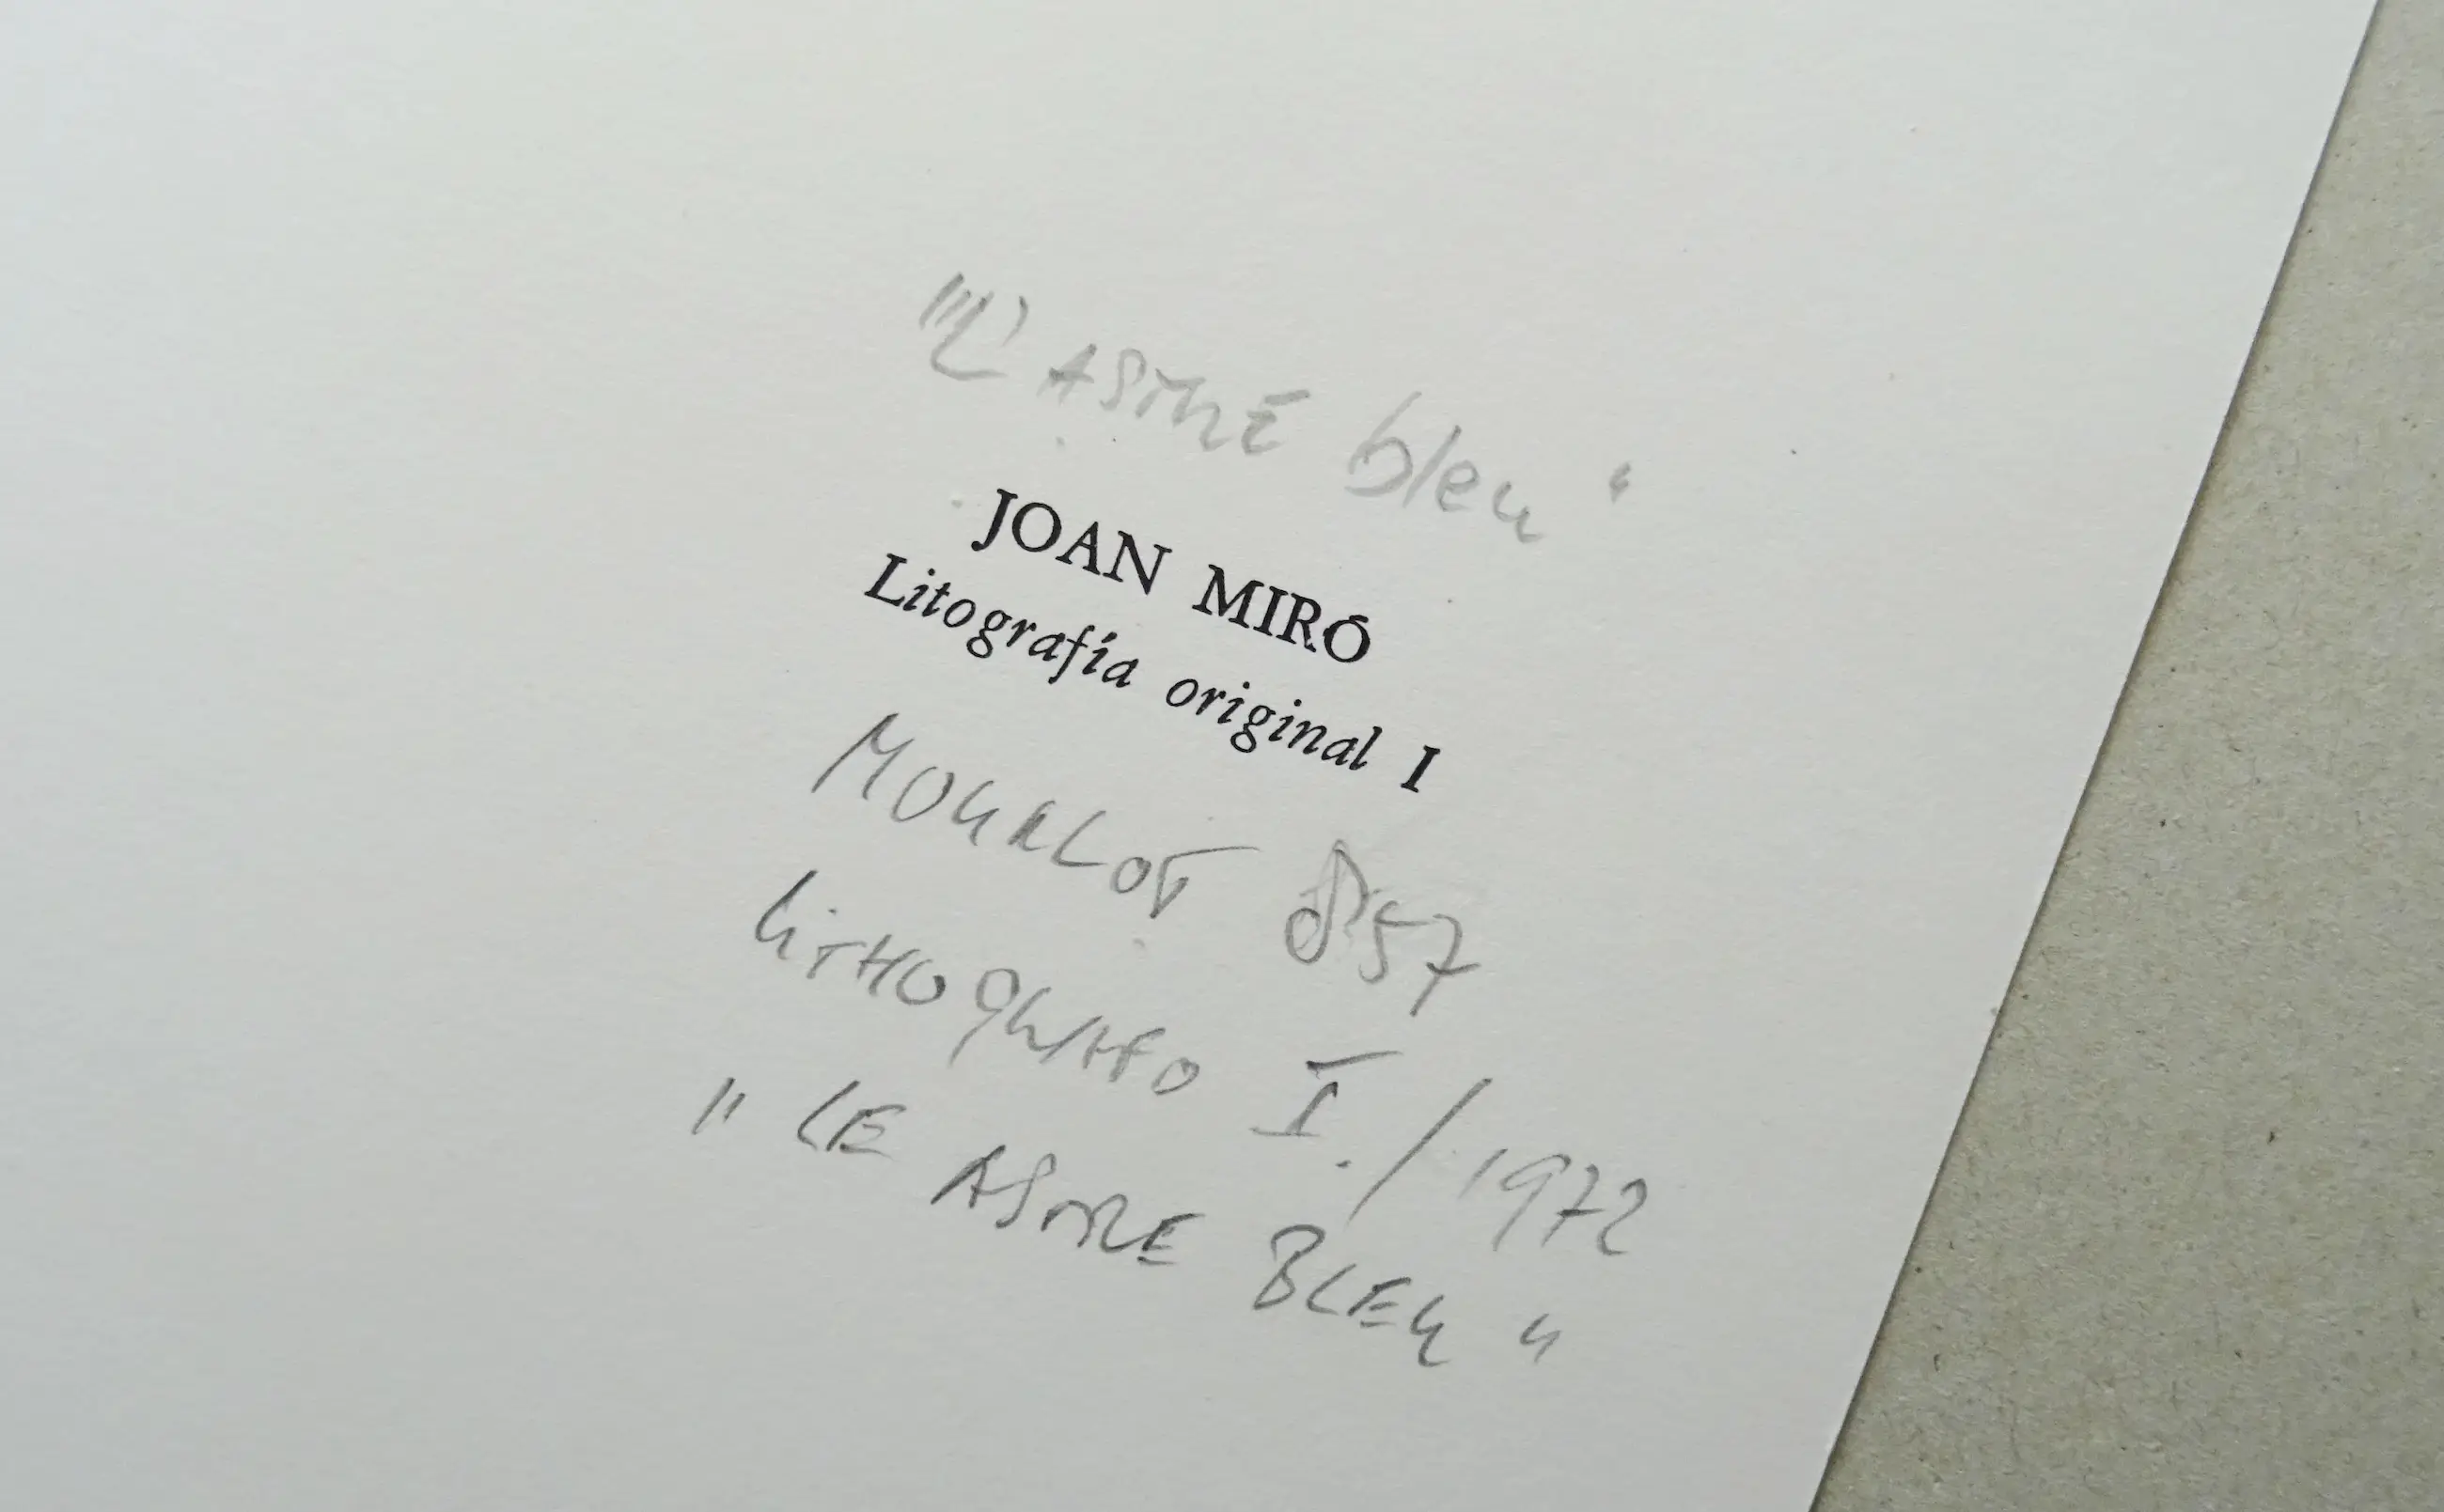 "L'ASTRE bleu"
JOAN MIRÓ
Litografía original I
MOURLOT 857
LITHOGRAFO I./1972
"LE ASTRE BLEU"